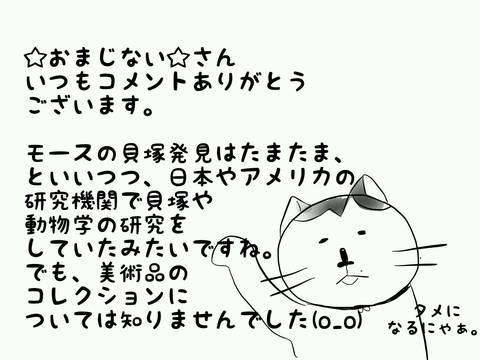 ☆おまじない☆さん
いつもコメントありがとう
ございます。
モースの貝塚発見はたまたま、
といいつつ、日本やアメリカの
研究機関で貝塚や
動物学の研究を
していたみたいですね。
でも、美術品の
コレクションに
ついては知りませんでした(o_o)
タメに
なるにゃぁ。